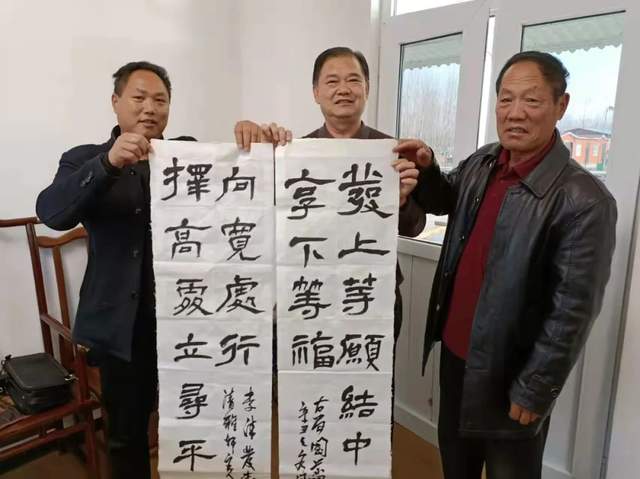 發上等願結中
享下等福
擇高處立尋平
向寬處行